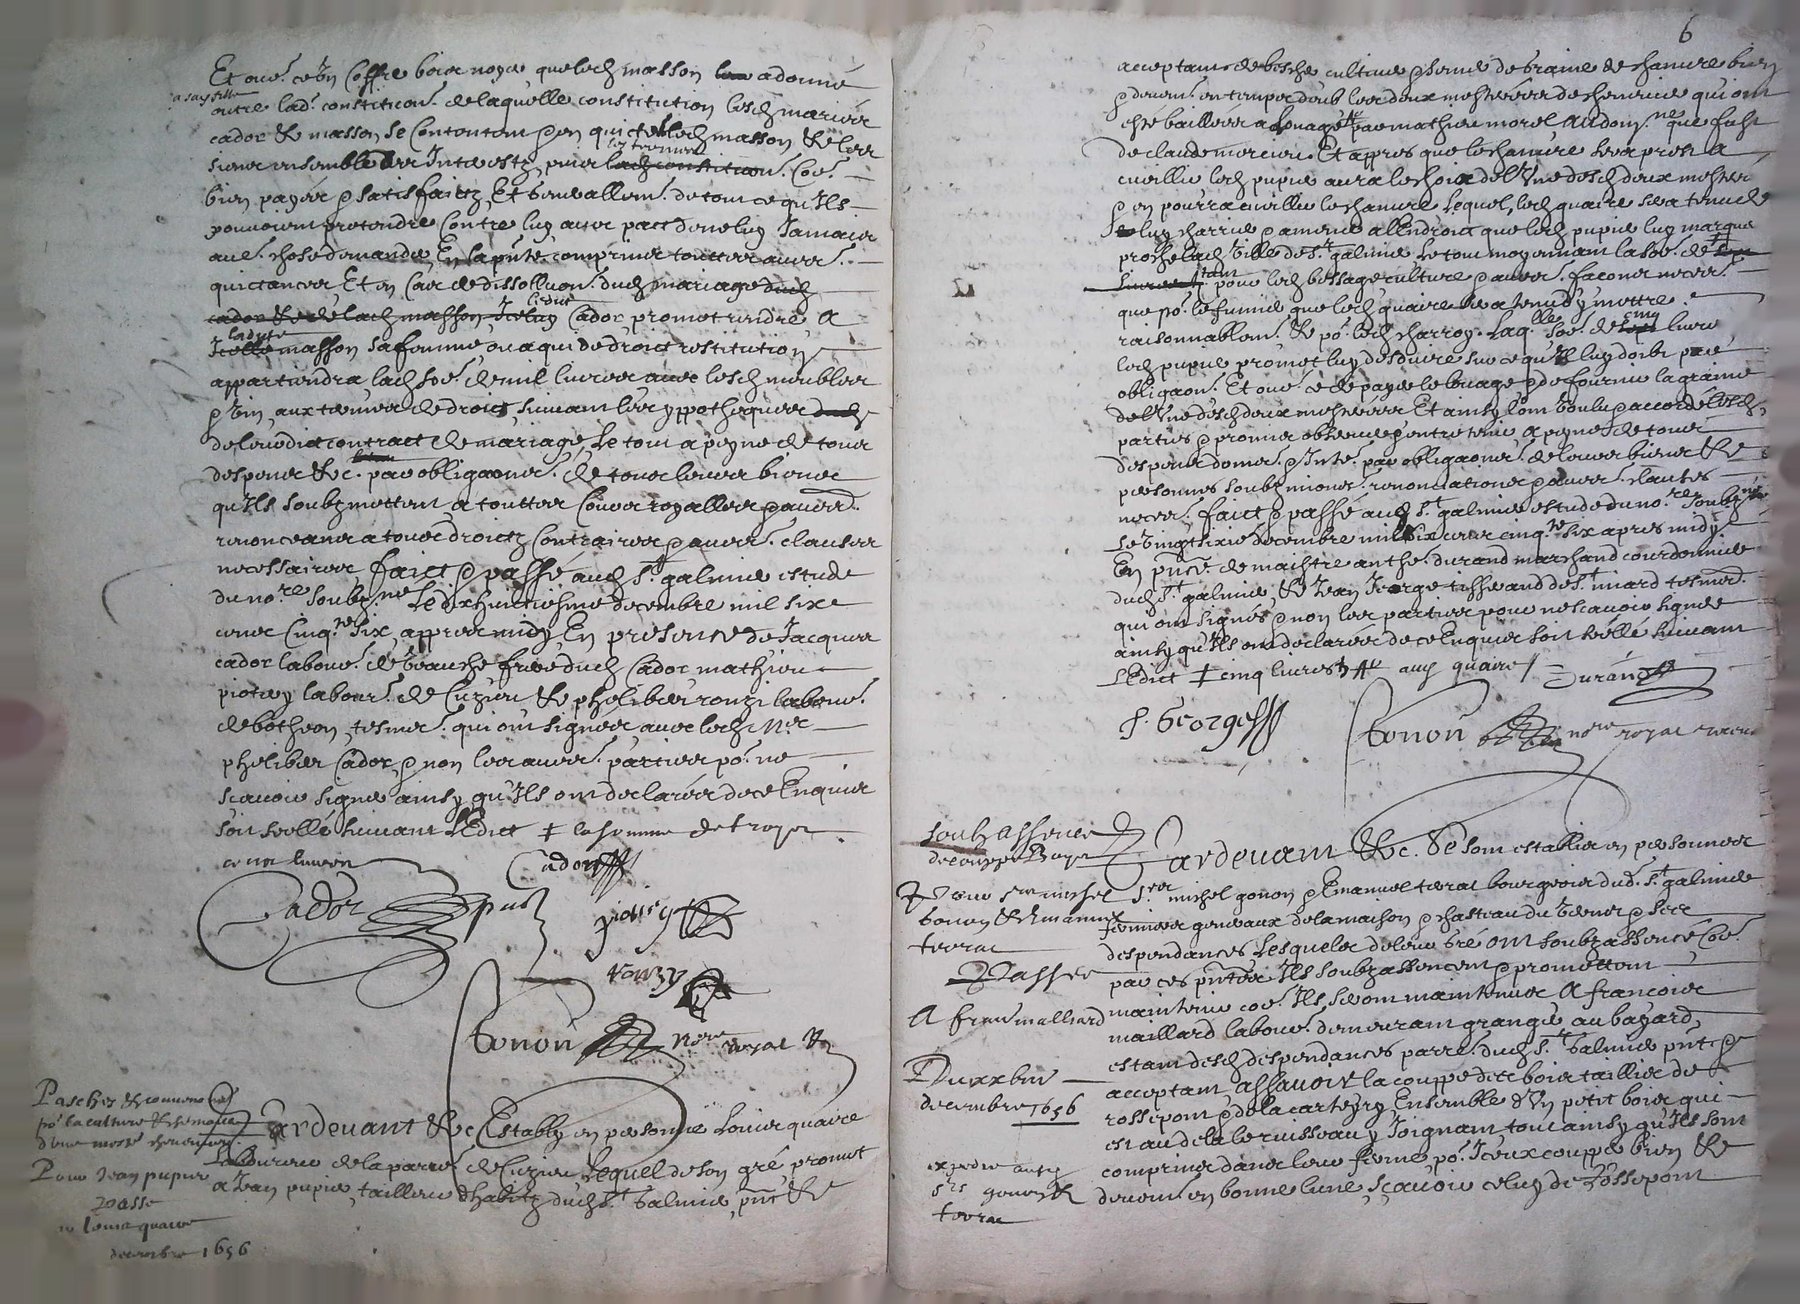 Et oue.^t ce un Coffre boix noyer que led. masson a donné
a sa fille
outre lad. constitu.on de laquelle constitution lesd. mariés
cador & masson se Contentent & en quictent led. masson & les
siens ensemble des Interestz
bien payés & satisfaictz, Et de tout ce qu'Ils
pouvoient pretendre Contre luy avec pact de ne luy Jamais
chose demander, En la pnte comprinses touttes autres
quictances Et en Cas de dissolluon. dud. mariage dud.
cador & de lad. masson Icelluy Cador promet rendre A
ladite
Icelle masson sa femme, ou a qui de droict restitution
appartiendra lad. soe. de mil livres avec lesd. meubles
& aux termes de droict, suivant les yppotheques dud.
de leurdict contract de mariage, Le tout a peyne de tous
despens &c. par obligaones. de tous leurs biens
qu'Ils soubzmettent a touttes Cours royalles & autres
renonceans a tous droictz Contraires & autres. clauses
necessaires faict & passé aud. S.t galmier estude
du no.re soubz.né Le dixhuictiesme decembre mil six
cens Cinq.te six, appres midy, En presence de Jacques
cador labour. de frere dud. Cador mathieu
piotey labour. de Cuzieu & phelibert ronzi labour.
de botheon, tesmoins. qui ont signés avec led. M.e
phelibert Cador, & non les autres. parties po.r ne
sçavoir signer ainsy qu'Ils ont declarés de ce Enquis
soit seellé suivant L'Edict ‡ la somme de troys
cens livres
Cador
Cador
piotey
ronzy
tonon no.re royal R
Pasches & conven.on
po.r la culture & semaille
d'une mestr. cheneviere
Pour Jean pupier
Passé
decembre 1656
Pardevant &c Estably en personne Louis quaire
laboureur de la parr.e de Cuzieu Lequel de son gré promet
a Jean pupier, tailleur d'habitz dud. S.t Galmier, pnt &
6
acceptant de bescher cultiver & semer de graine de chanvre bien
& deuem.t en temps deub les deux mesterees de cheneviere qui ont
esté baillees a louage par mathieu morel
de claude mercier. Et appres que le chanvre sera prest a
cueillir led. pupier aura le choix de l'Une desd. deux mester
& en pourra cueillir le chanvre Lequel, led. quaire sera tenu de
luy charrier & amener a l'Endroict que led. pupier luy marquera
proche lad. Ville de S.t galmier Le tout moyennant la soe. de
livres tant pour led. bessage culture & autres. façons necess.
que po.r le fumier que led. quaire sera tenu d'y mettre
raisonnablem.t & po.r led. charroy. Laq.lle soe. de cinq livres
led. pupier promet luy desduire sur ce qu'Il luy doibt par
obligaon. Et oue. ce de payer le louage & de fournir la graine
de l'Une desd. deux mesterees Et ainsy l'ont Voulu & accordé lesd.
parties & promis observer & entretenir a peyne de tous
despens domes. & Inte. par obligaones. de leurs biens &
personnes soubzmiones. renonciations & autres. clauses
necess. faict & passé aud. S.t galmier estude du no.re soubz.né
Le Vingtsixie. decembre mil six cens cinq.te six apres midy
En pnce. de maistre anthe. durand marchand courdonnier
dud. S.t galmier, & Jean George tisserand de S.t tesmoins
qui ont signés & non les parties pour ne sçavoir signer
ainsy qu'Ils ont declarés de ce Enquis soit seellé suivant
L'Edict ‡ cinq livres aud. quaire
Durand
J. George
tonon no.re royal
soubz assence
de couppe Boys
Pour S.rs michel
Gonon & Emanuel
terrat
Passé
A frans maillard
Du xxbme
decembre 1656
expedié auxd.
S.rs gonon &
terrat
Pardevant &c. Se sont establis en personnes
S.ers michel gonon & Emanuel terrat bourgeois dud. S.t galmier
fermiers generaux de la maison & chasteau du Verney & ses
despendances Lesquelz de leur gré ont soubzassencé Coe.
par ces pntes Ils soubzassencent & promettent
maintenir coe. Ils seront maintenus A françois
maillard labour. demeurant granger au bayard,
estant desd. despendances parre. dud. S.t Galmier pnt &
acceptant, assavoir la couppe des boix taillis de
rossepont & de la carteyry Ensemble d'Un petit boix qui
est au dela le ruisseau y Joignant tout ainsy qu'Ils sont
comprins dans leur ferme, po.r Iceux coupper bien &
deuem.t en bonne lune, sçavoir celuy de Rossepont